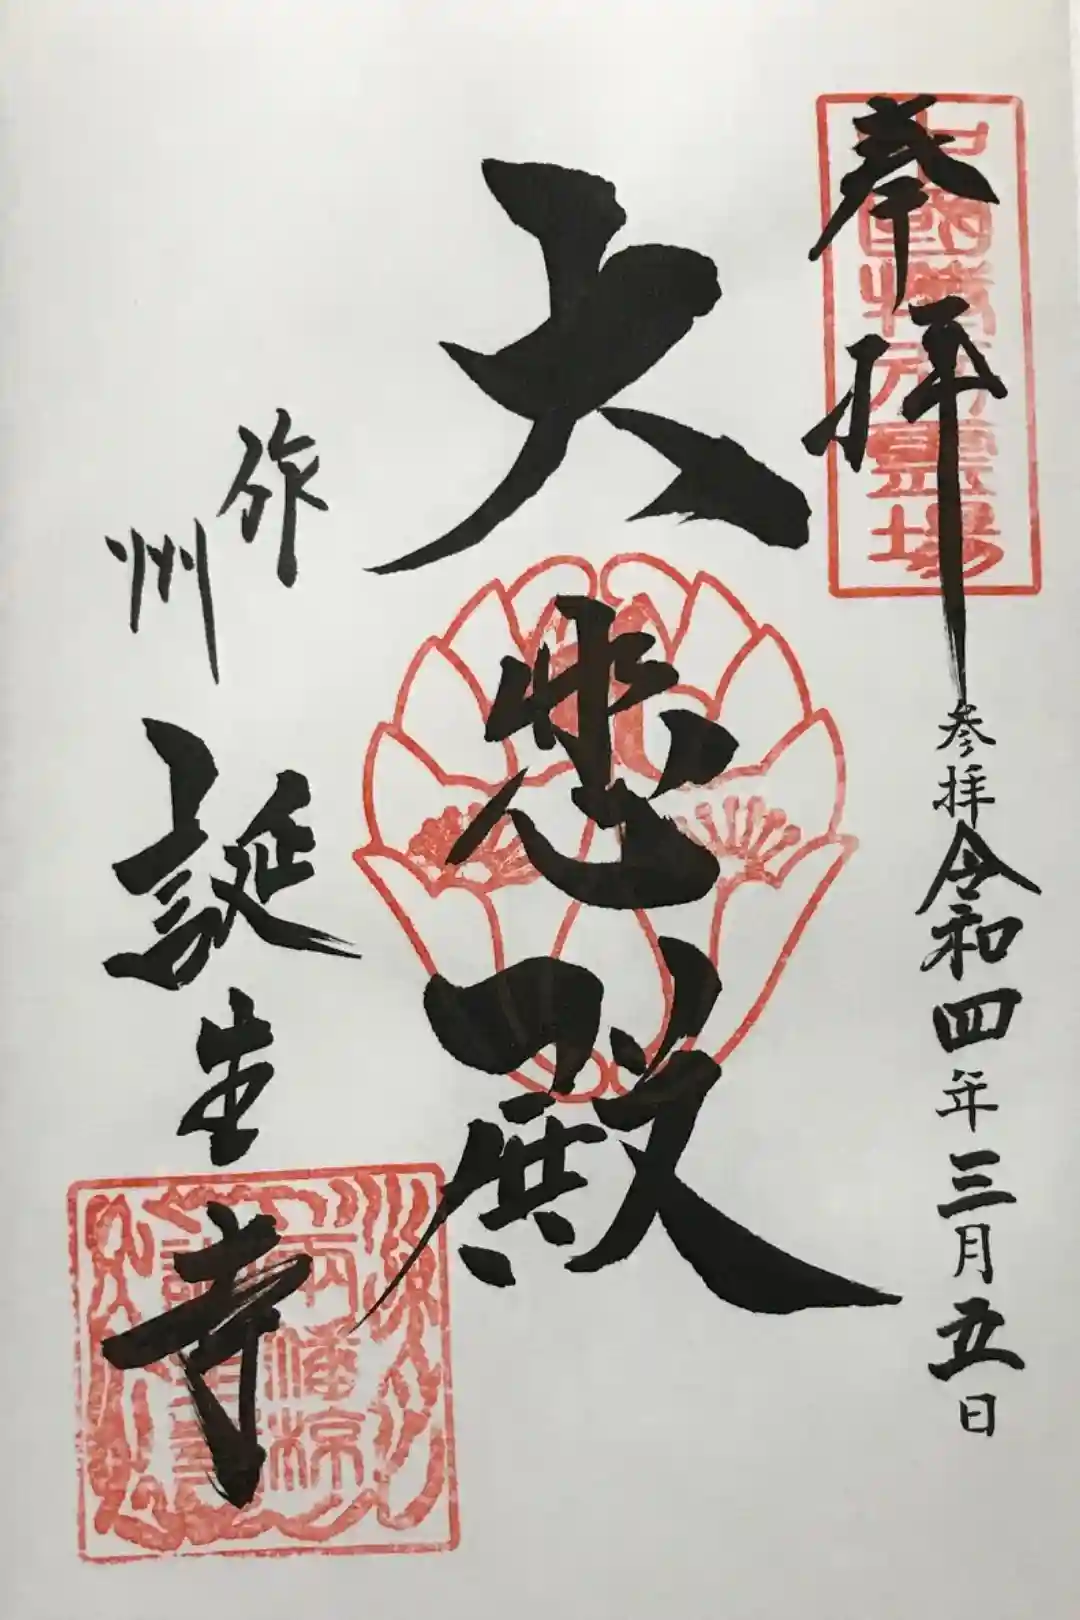 奉拝
中國観音霊場
参拝令和四年三月五日
大悲殿
作州
誕生寺